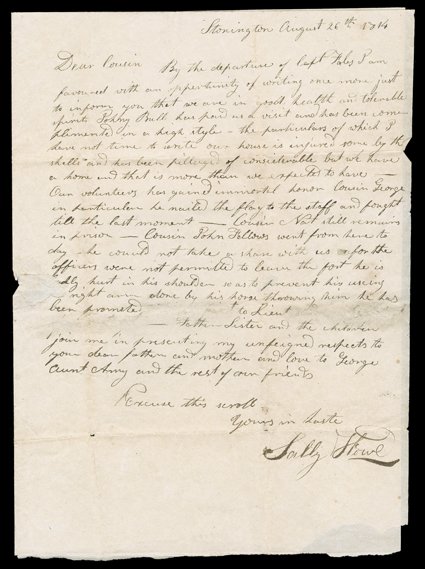 Stonington August 26th 1814
Dear Cousin By the departure of Capt Fales I am
favoured with an oppertunity of writing once more just
to inform you that we are in good health and tolerable
spirits Johny Bull has paid us a visit and has been com-
plemented in a high style - the particulars of which I
have not time to write our house is injured some by the
shells and has been pillaged of considerable but we have
a home and that is more than we expected to have -
Our volunteers has gained immortal honor Cousin George
in particular he nailed the flag to the staff and fought
till the last moment - Cousin Nat still remains
in prison - Cousin John Fellows went from here to
day he could not take a share with us for the
officers were not permitted to leave the port he is
badly hurt in his shoulder so as to prevent his using
right arm alone by his horse throwing him he has
been promoted to Lieut
- Father Sister and the children
join me in presenting my unfeigned respects to
your dear father and mother and love to George
Aunt Amy and the rest of our friends
Excuse this scroll
Yours in haste
Sally Stowe